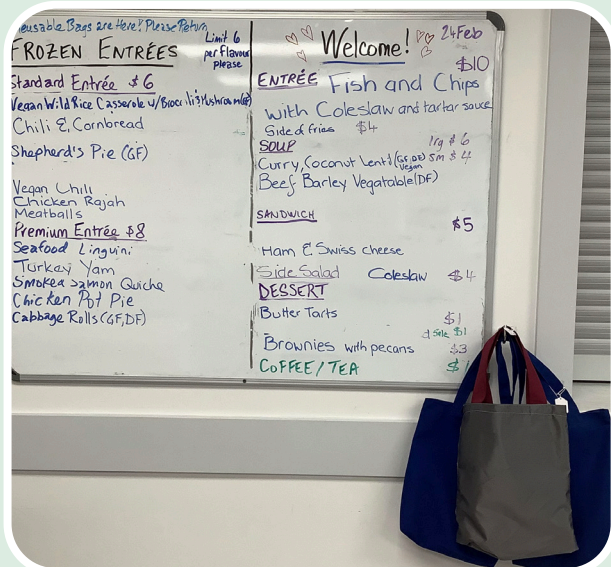 Reusable Bags are Here! Please Return
FROZEN ENTRÉES
Limit 6
per flavour
please
Standard Entrée $6
Vegan Wild Rice Casserole w/ Broccili & Mushroom (GF)
Chili & Cornbread
Shepherd's Pie (GF)
Vegan Chili
Chicken Rajah
Meatballs
Premium Entrée $8
Seafood Linguini
Turkey Yam
Smoked Salmon Quiche
Chicken Pot Pie
Cabbage Rolls (GF, DF)
Welcome!
24 Feb
$10
ENTRÉE Fish and Chips
with Coleslaw and tartar sauce
Side of fries $4
SOUP lrg $6
Curry, Coconut Lentil (GF, DF) Vegan sm $4
Beef Barley Vegatable (DF)
SANDWICH
$5
Ham & Swiss cheese
Side Salad Coleslaw $4
DESSERT
Butter Tarts $1
Sale $1
Brownies with pecans $3
COFFEE/TEA $